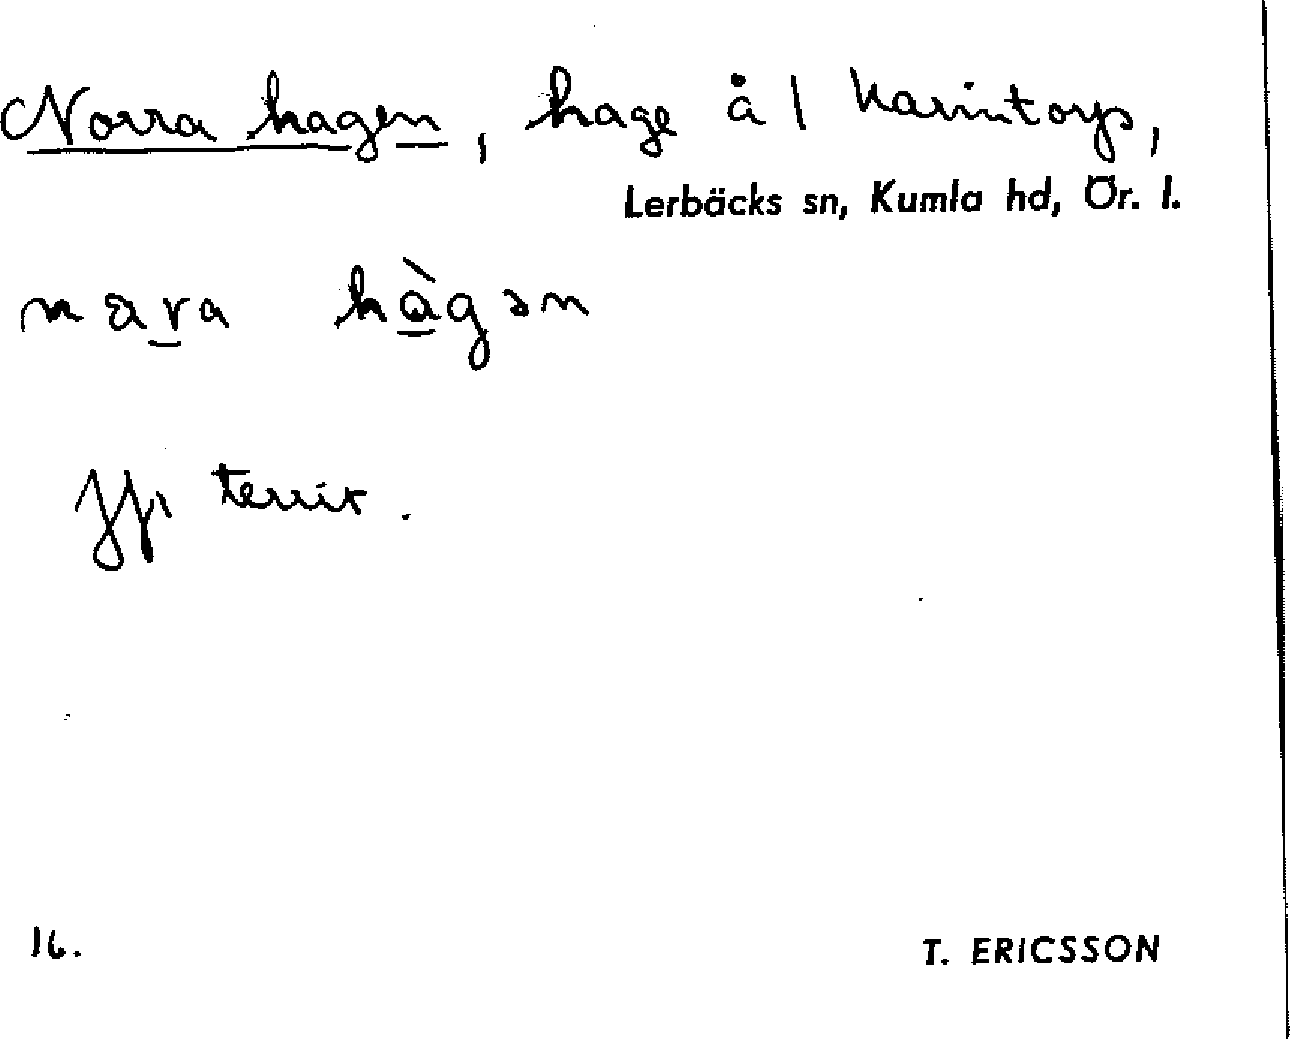 Norra hagen, hage å 1 Karintorp,
Lerbäcks sn, Kumla hd, Ör. l.
hàgən
territ.
16.
T. ERICSSON